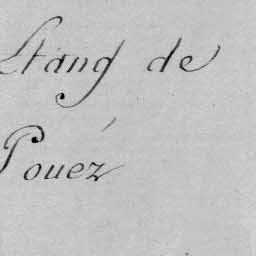 Etang de
Pouéz